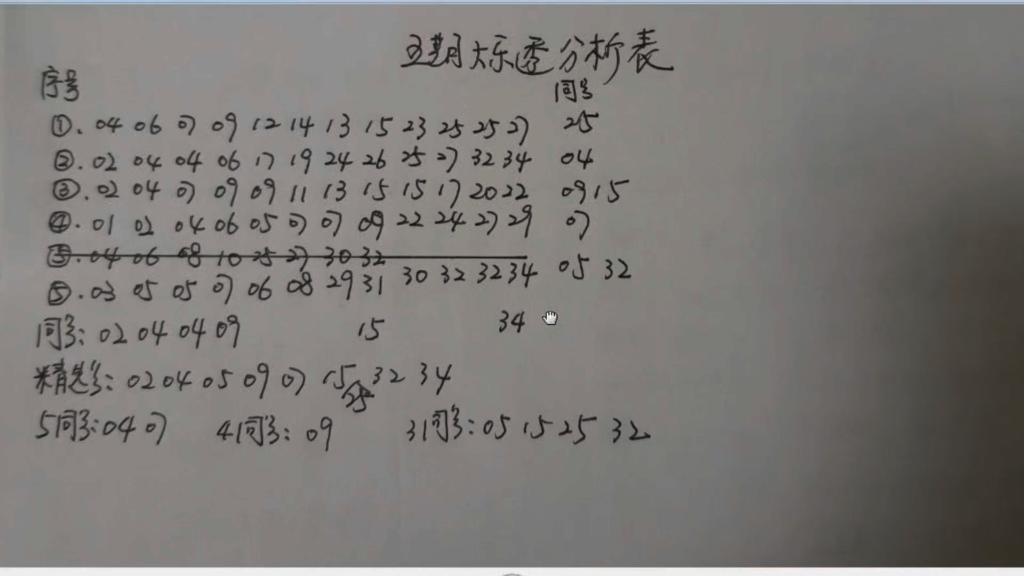 五期大乐透分析表
序号 同号
①. 04 06 07 09 12 14 13 15 23 25 25 27 25
②. 02 04 04 06 17 19 24 26 25 27 32 34 04
③. 02 04 07 09 09 11 13 15 15 17 20 22 09 15
④. 01 02 04 06 05 07 07 09 22 24 27 29 07
⑤. 04 06 08 10 25 27 30 32
⑤. 03 05 05 07 06 08 29 31 30 32 32 34 05 32
同号: 02 04 04 09 15 34
精选号: 02 04 05 09 07 15 32 34
25
5同号: 04 07 41同号: 09 31同号: 05 15 25 32